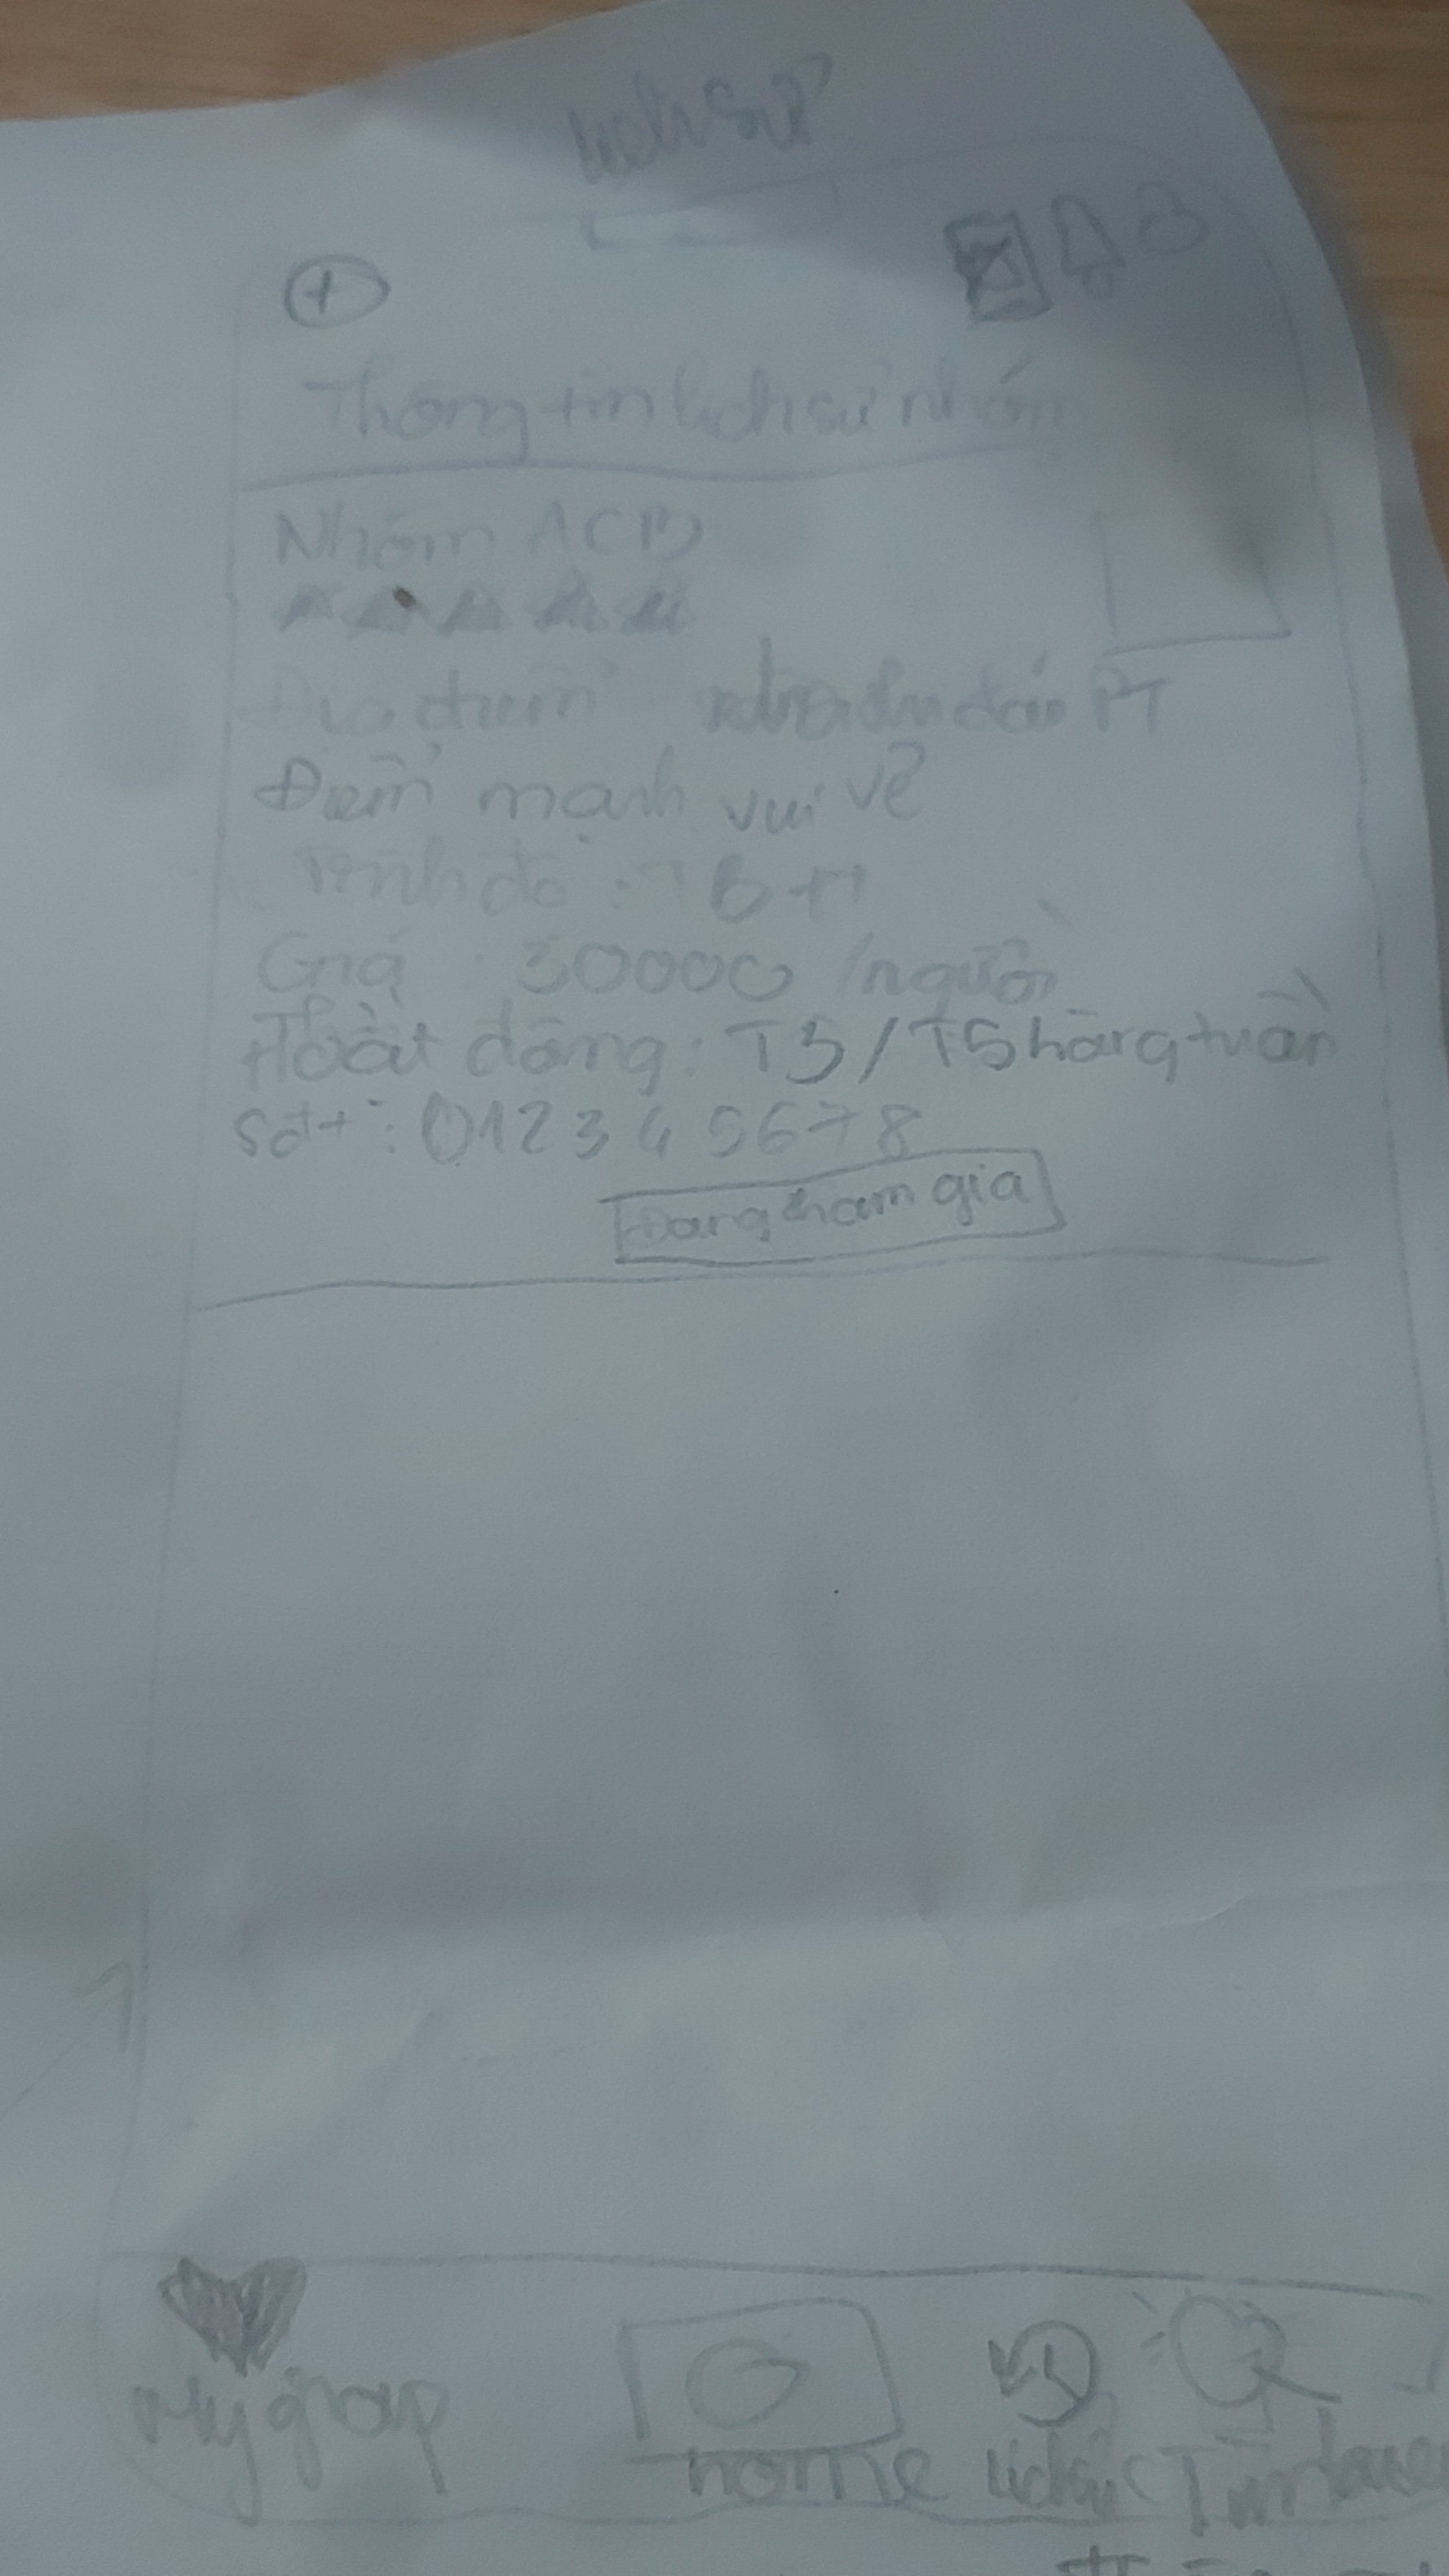 Lịch sử
Thông tin lịch sử nhóm
Nhóm ACB
Địa điểm PT
Điểm mạnh vui vẻ
Trình độ: TB +
Giá : 30000 /người
Hoạt động: T3/T5 hàng tuần
Sđt : 012345678
Đang tham gia
My group
home